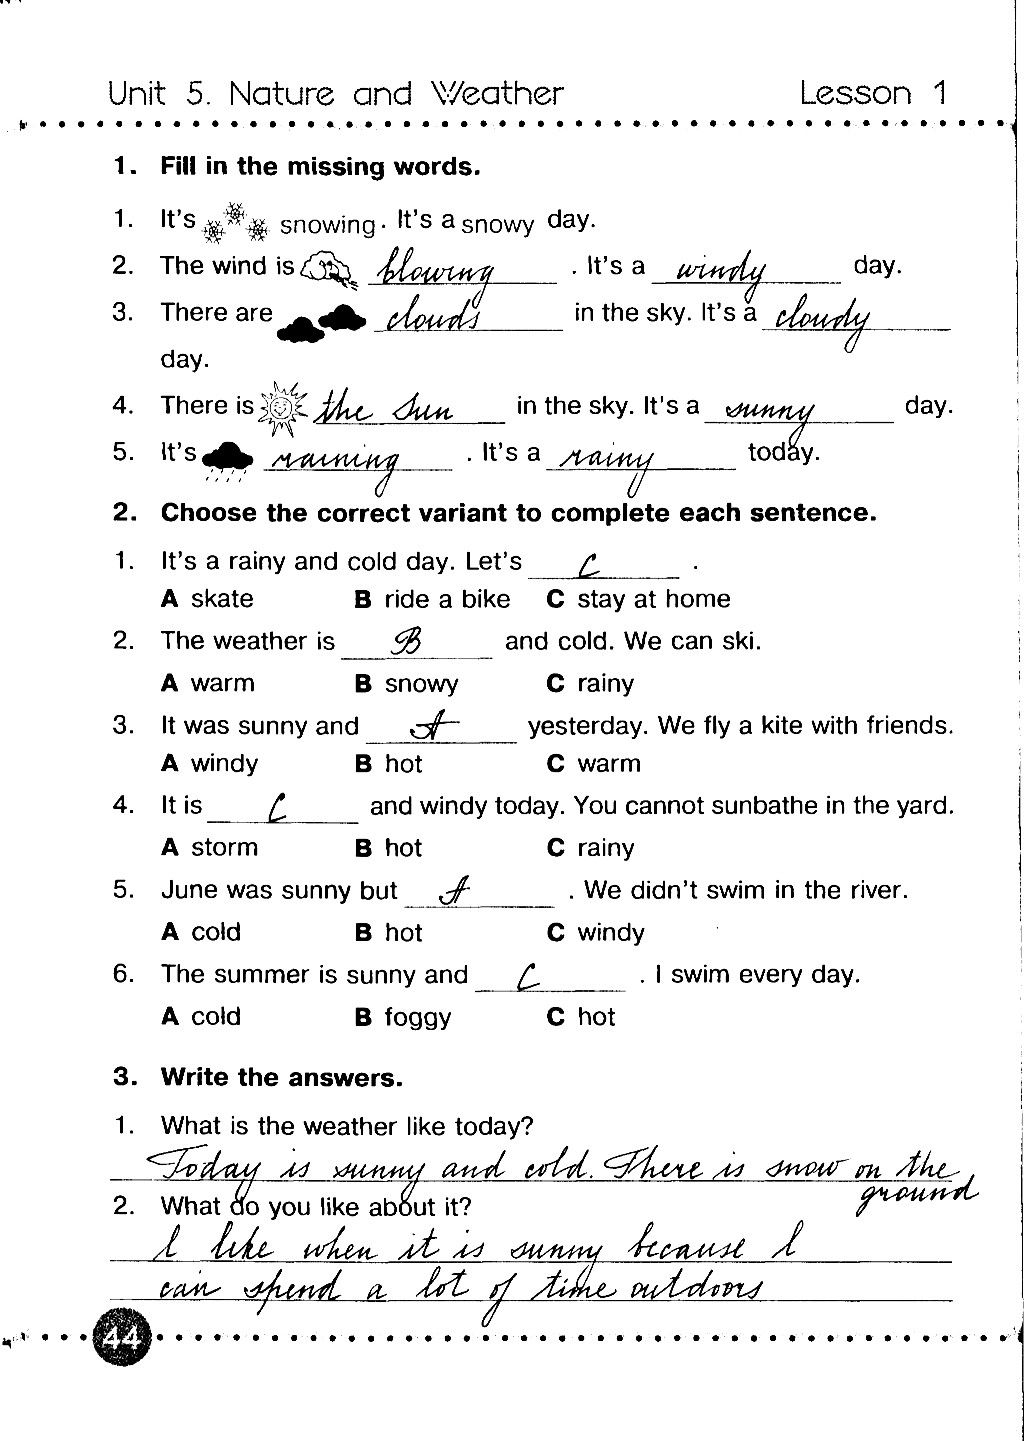 Unit 5. Nature and Weather Lesson 1
1. Fill in the missing words.
1. It's snowing. It's a snowy day.
2. The wind is blowing. It's a windy day.
3. There are clouds in the sky. It's a cloudy
day.
4. There is the sun in the sky. It's a sunny day.
5. It's raining. It's a rainy today.
2. Choose the correct variant to complete each sentence.
1. It's a rainy and cold day. Let's C.
A skate B ride a bike C stay at home
2. The weather is B and cold. We can ski.
A warm B snowy C rainy
3. It was sunny and A yesterday. We fly a kite with friends.
A windy B hot C warm
4. It is C and windy today. You cannot sunbathe in the yard.
A storm B hot C rainy
5. June was sunny but A. We didn't swim in the river.
A cold B hot C windy
6. The summer is sunny and C. I swim every day.
A cold B foggy C hot
3. Write the answers.
1. What is the weather like today?
Today is sunny and cold. There is snow on the
ground
2. What do you like about it?
I like when it is sunny because I
can spend a lot of time outdoors
44